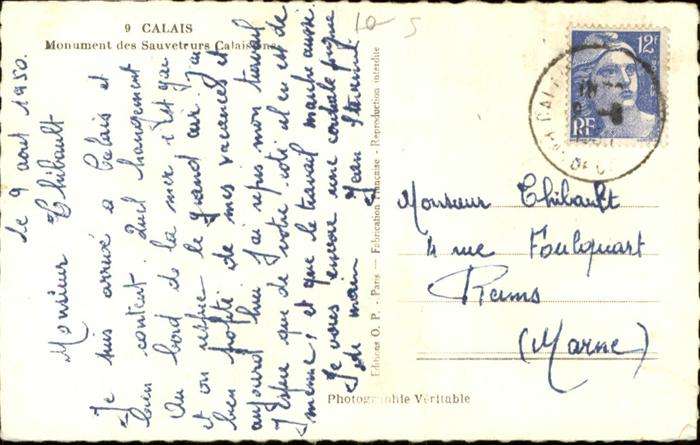 9 CALAIS
Monument des Sauveteurs Calaisiens
le 9 août 1950.
Monsieur
Thibault
Je suis arrivé a Calais et
bien content. Quel changement
Au bord de la mer c'est gai
et on respire le grand air. J'ai
bien profité de mes vacances et
aujourd'hui j'ai repris mon travail
J'espère que de votre côté il en est de
même, et que le travail marche aussi.
Je vous envoie une cordiale poignée
de main
Jean
Editions O. P. - Paris — Fabrication Française - Reproduction interdite
Photographie Véritable
10 5
12F
RF
CALAIS
Monsieur Thibault
4 rue Foulquart
Reims
(Marne)